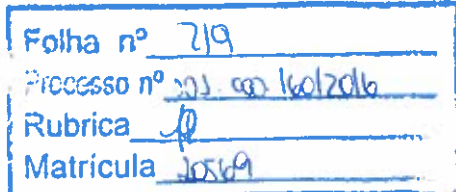 Folha nº 719
Processo nº 000 160/2016
Rubrica
Matrícula 20569